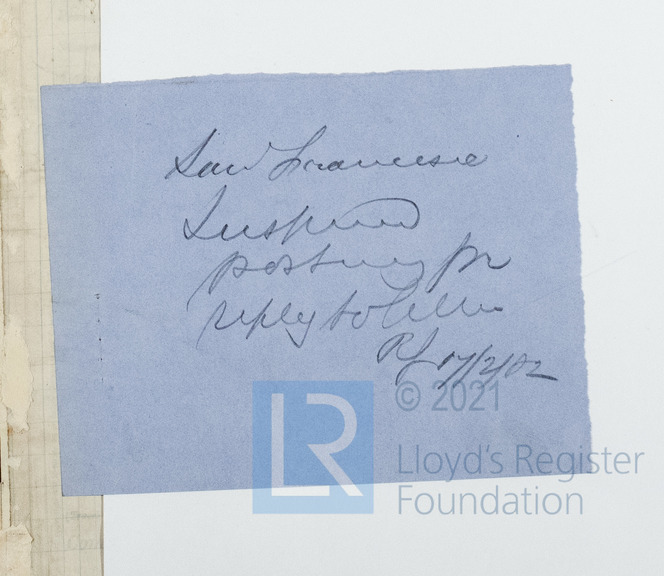 San Francisco
Suspend
posting for
reply to letter
RJ 17/2/02
LR
© 2021
Lloyd's Register
Foundation